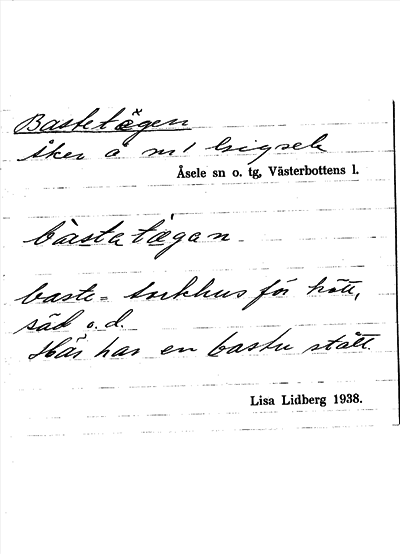 Bastetägen
åker å nr 1 Gigsele
Åsele sn o. tg, Västerbottens l.
bàstetä̀gan
baste = torkhus för kött,
säd o. d.
Här har en bastu stått.
Lisa Lidberg 1938.